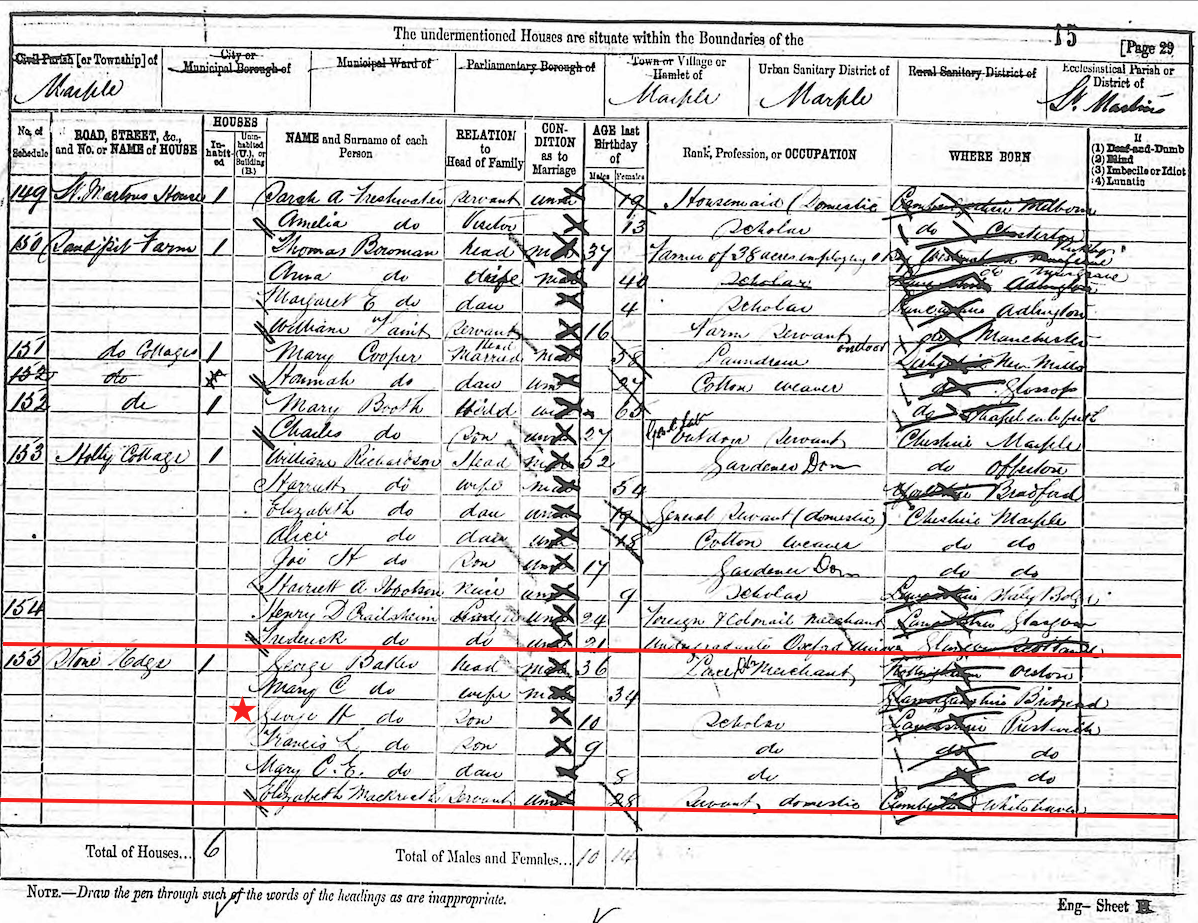 The undermentioned Houses are situate within the Boundaries of the
15
[Page 29
Civil Parish [or Township] of
Marple
City or
Municipal Borough of
Municipal Ward of
Parliamentary Borough of
Town or Village or
Hamlet of
Marple
Urban Sanitary District of
Marple
Rural Sanitary District of
Ecclesiastical Parish or
District of
St. Martins
No. of
Schedule
ROAD, STREET, &c.,
and No. or NAME of HOUSE
HOUSES
In-
habit-
ed
Unin-
habited
(U.), or
Building
(B.)
NAME and Surname of each
Person
RELATION
to
Head of Family
CON-
DITION
as to
Marriage
AGE last
Birthday
of
Males Females
Rank, Profession, or OCCUPATION
WHERE BORN
If
(1) Deaf-and-Dumb
(2) Blind
(3) Imbecile or Idiot
(4) Lunatic
149 St. Martins House 1 Sarah A Freshwater Servant unm 19 Housemaid (Domestic
Amelia do Visitor 13 Scholar do Chesterton
150 Sandpit Farm 1 Thomas Bowman head mar 37 Farmer of 38 acres employing 1
Anna do wife mar 40 Scholar Adlington
Margaret E do dau 4 Scholar Adlington
William Servant 16 Farm Servant outdoor Manchester
151 do Cottages 1 Mary Cooper Head Married 58 Laundress New Mills
152 do Hannah do dau unm 27 Cotton weaver do Glossop
152 do 1 Mary Booth Head wid 65 do
Charles do Son unm 27 Outdoor Servant Cheshire Marple
153 Holly Cottage 1 William Richardson Head mar 52 Gardener Dom do Offerton
Harriett do wife mar 54 Yorkshire Bradford
Elizabeth do dau unm 19 General Servant (domestic) Cheshire Marple
Alice do dau unm 18 Cotton weaver do do
Joe H do Son unm 17 Gardener Dom do do
Harriett A Niece unm 9 Scholar Lancashire
154 Henry D unm 24 Foreign merchant Glasgow
Frederick do do unm 21 Undergraduate Oxford
155 Stone Edge 1 George head mar 36 Merchant Orston
Mary C do wife mar 34 Glamorganshire Bridgend
George H do Son 10 Scholar Lancashire Prestwich
Francis L do Son 9 do do do
Mary C. E. do dau 8 do do do
Elizabeth Mackreth Servant unm 28 Servant domestic Cumberland Whitehaven
Total of Houses... 6
Total of Males and Females... 10 14
NOTE.—Draw the pen through such of the words of the headings as are inappropriate.
Eng- Sheet